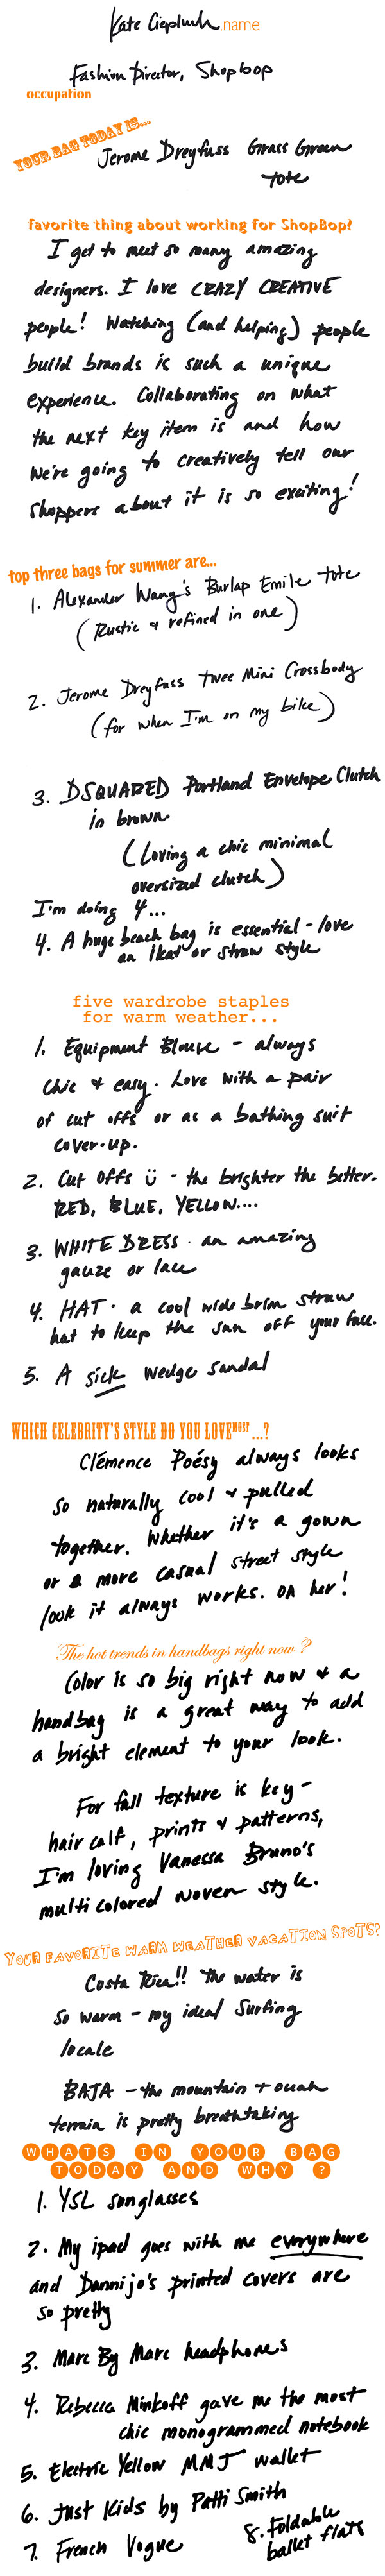 Kate Ciepluch name
Fashion Director, Shopbop
occupation
YOUR BAG TODAY IS...
Jerome Dreyfuss Grass Green
tote
favorite thing about working for ShopBop?
I get to meet so many amazing
designers. I love CRAZY CREATIVE
people! Watching (and helping) people
build brands is such a unique
experience. Collaborating on what
the next key item is and how
we're going to creatively tell our
shoppers about it is so exciting!
top three bags for summer are...
1. Alexander Wang's Burlap Emile tote
(Rustic + refined in one)
2. Jerome Dreyfuss Twee Mini Crossbody
(for when I'm on my bike)
3. DSQUARED Portland Envelope Clutch
in brown.
(Loving a chic minimal
oversized clutch)
I'm doing 4...
4. A huge beach bag is essential - love
an Ikat or straw style
five wardrobe staples
for warm weather...
1. Equipment Blouse - always
chic + easy. Love with a pair
of cut offs or as a bathing suit
cover-up.
2. Cut offs ü - the brighter the better.
RED, BLUE, YELLOW....
3. WHITE DRESS - an amazing
gauze or lace
4. HAT - a cool wide brim straw
hat to keep the sun off your face.
5. A sick wedge sandal
WHICH CELEBRITY'S STYLE DO YOU LOVE MOST ...?
Clémence Poésy always looks
so naturally cool + pulled
together. Whether it's a gown
or a more casual street style
look it always works. on her!
The hot trends in handbags right now?
Color is so big right now + a
handbag is a great way to add
a bright element to your look.
For fall texture is key -
hair calf, prints + patterns,
I'm loving Vanessa Bruno's
multi colored woven style.
YOUR FAVORITE WARM WEATHER VACATION SPOTS?
Costa Rica!! The water is
so warm - my ideal surfing
locale
BAJA - the mountain + ocean
terrain is pretty breathtaking
WHATS IN YOUR BAG
TODAY AND WHY ?
1. YSL sunglasses
2. My ipad goes with me everywhere
and Dannijo's printed covers are
so pretty
3. Marc By Marc headphones
4. Rebecca Minkoff gave me the most
chic monogrammed notebook
5. Electric Yellow MMJ wallet
6. Just Kids by Patti Smith
7. French Vogue
8. Foldable
ballet flats